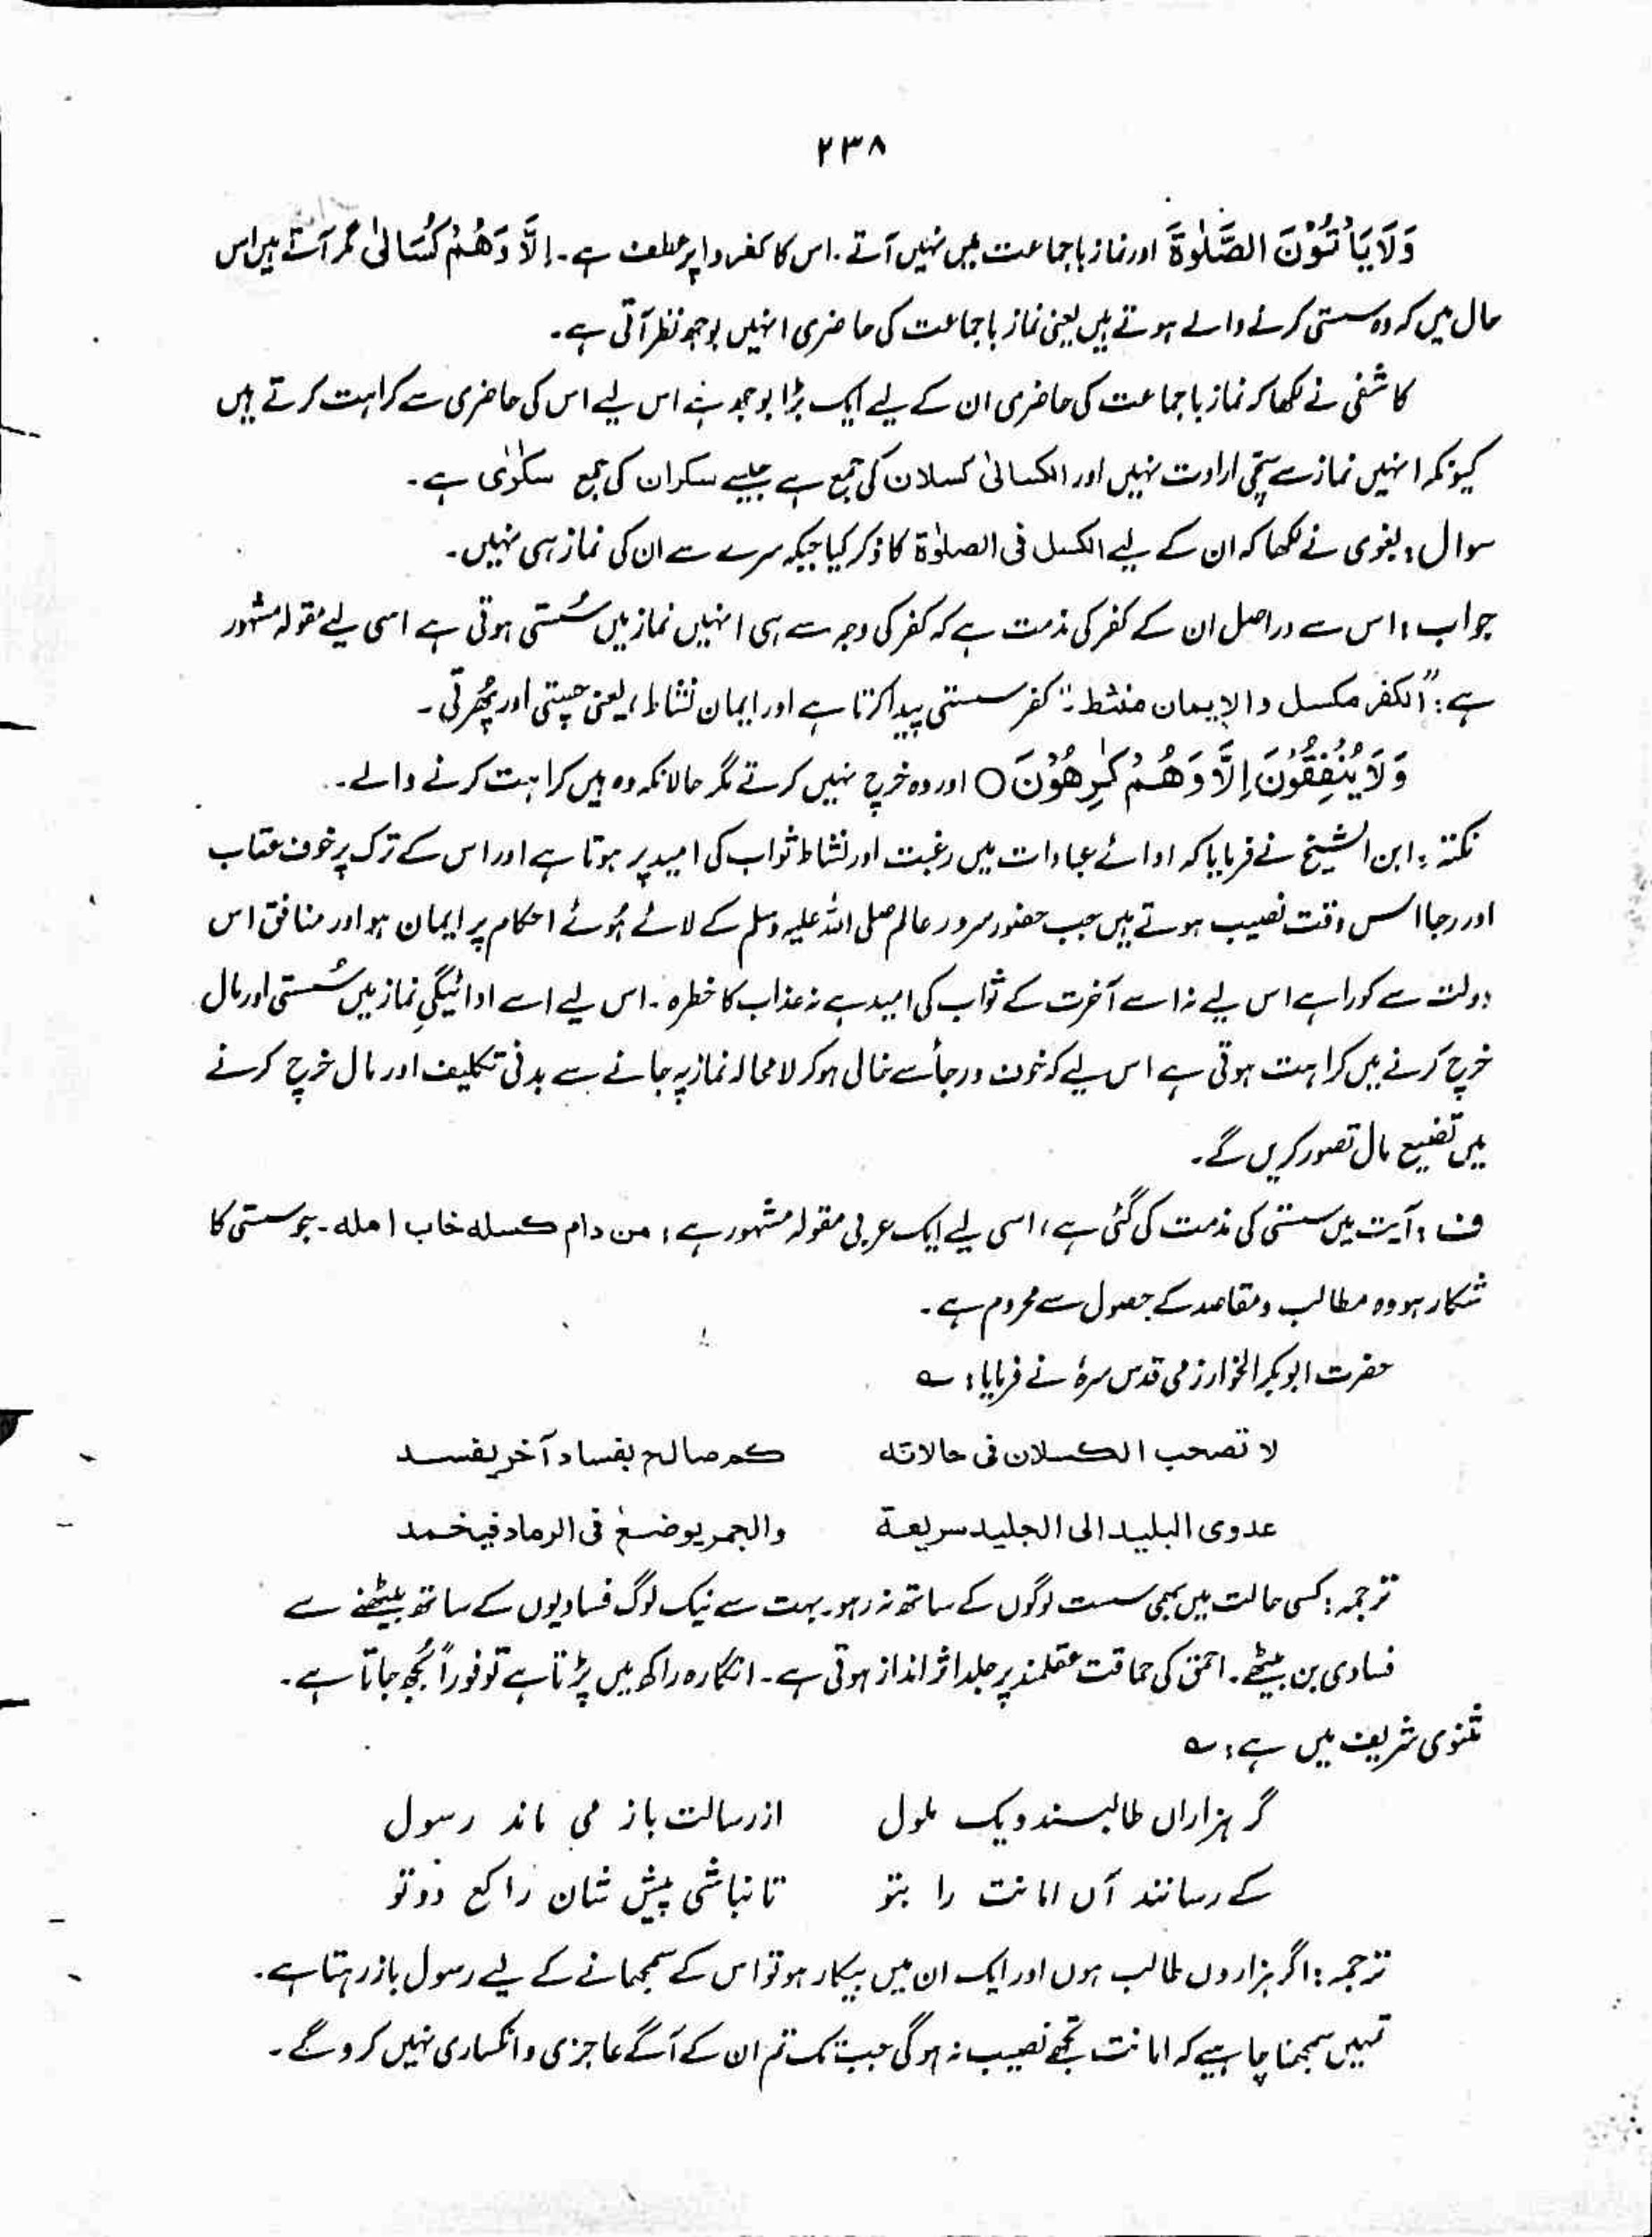 ۲۳۸
وَلَا يَأْتُوْنَ الصَّلٰوةَ اور نماز باجماعت میں نہیں آتے۔ اس کا کفروا پر عطف ہے۔ اِلَّا وَهُمْ كُسَالٰى مگر آتے ہیں اس
حال میں کہ وہ سستی کرنے والے ہوتے ہیں یعنی نماز باجماعت کی حاضری انہیں بوجھ نظر آتی ہے۔
کاشفی نے لکھا کہ نماز باجماعت کی حاضری ان کے لیے ایک بڑا بوجھ ہے اس لیے اس کی حاضری سے کراہت کرتے ہیں
کیونکہ انہیں نماز سے سچی ارادت نہیں اور الکسالیٰ کسلان کی جمع ہے جیسے سکران کی جمع سکرٰی ہے۔
سوال: بغوی نے لکھا کہ ان کے لیے الکسل فی الصلوٰۃ کا ذکر کیا جبکہ سرے سے ان کی نماز ہی نہیں۔
جواب: اس سے دراصل ان کے کفر کی مذمت ہے کہ کفر کی وجہ سے ہی انہیں نماز میں سُستی ہوتی ہے اسی لیے مقولہ مشہور
ہے: "الکفر مکسل والایمان منشط۔" کفر سستی پیدا کرتا ہے اور ایمان نشاط، یعنی چستی اور پُھرتی۔
وَلَا يُنْفِقُوْنَ اِلَّا وَهُمْ كٰرِهُوْنَ ○ اور وہ خرچ نہیں کرتے مگر حالانکہ وہ ہیں کراہت کرنے والے۔
نکتہ: ابن الشیخ نے فرمایا کہ ادائے عبادات میں رغبت اور نشاط ثواب کی امید پر ہوتا ہے اور اس کے ترک پر خوف عتاب
اور رجا اس وقت نصیب ہوتے ہیں جب حضور سرور عالم صلی اللہ علیہ وسلم کے لائے ہُوئے احکام پر ایمان ہو اور منافق اس
دولت سے کورا ہے اس لیے نہ اسے آخرت کے ثواب کی امید ہے نہ عذاب کا خطرہ۔ اس لیے اسے ادائیگیِ نماز میں سُستی اور مال
خرچ کرنے میں کراہت ہوتی ہے اس لیے کہ خوف و رجأ سے خالی ہو کر لامحالہ نماز پہ جانے سے بدنی تکلیف اور مال خرچ کرنے
میں تضیع مال تصور کریں گے۔
ف: آیت میں سستی کی مذمت کی گئی ہے، اسی لیے ایک عربی مقولہ مشہور ہے: من دام کسله خاب امله۔ جو سستی کا
شکار ہو وہ مطالب و مقاصد کے حصول سے محروم ہے۔
حضرت ابوبکر الخوارزمی قدس سرہٗ نے فرمایا: ؎
لا تصحب الکسلان فی حالاتہ کم صالح بفساد آخر یفسد
عدوی البلید الی الجلید سریعة والجمر یوضع فی الرماد فیخمد
ترجمہ: کسی حالت میں بھی سست لوگوں کے ساتھ نہ رہو۔ بہت سے نیک لوگ فسادیوں کے ساتھ بیٹھنے سے
فسادی بن بیٹھے۔ احمق کی حماقت عقلمند پر جلد اثر انداز ہوتی ہے۔ انگارہ راکھ میں پڑتا ہے تو فوراً بُجھ جاتا ہے۔
مثنوی شریف میں ہے: ؎
گر ہزاراں طالبسند و یک ملول از رسالت باز می ماند رسول
کے رسانند آں امانت را بتو تا نباشی پیش شان راکع دوتو
ترجمہ: اگر ہزاروں طالب ہوں اور ایک ان میں بیکار ہو تو اس کے سمجھانے کے لیے رسول باز رہتا ہے۔
تمہیں سمجھنا چاہیے کہ امانت تجھے نصیب نہ ہوگی جب تک تم ان کے آگے عاجزی و انکساری نہیں کرو گے۔